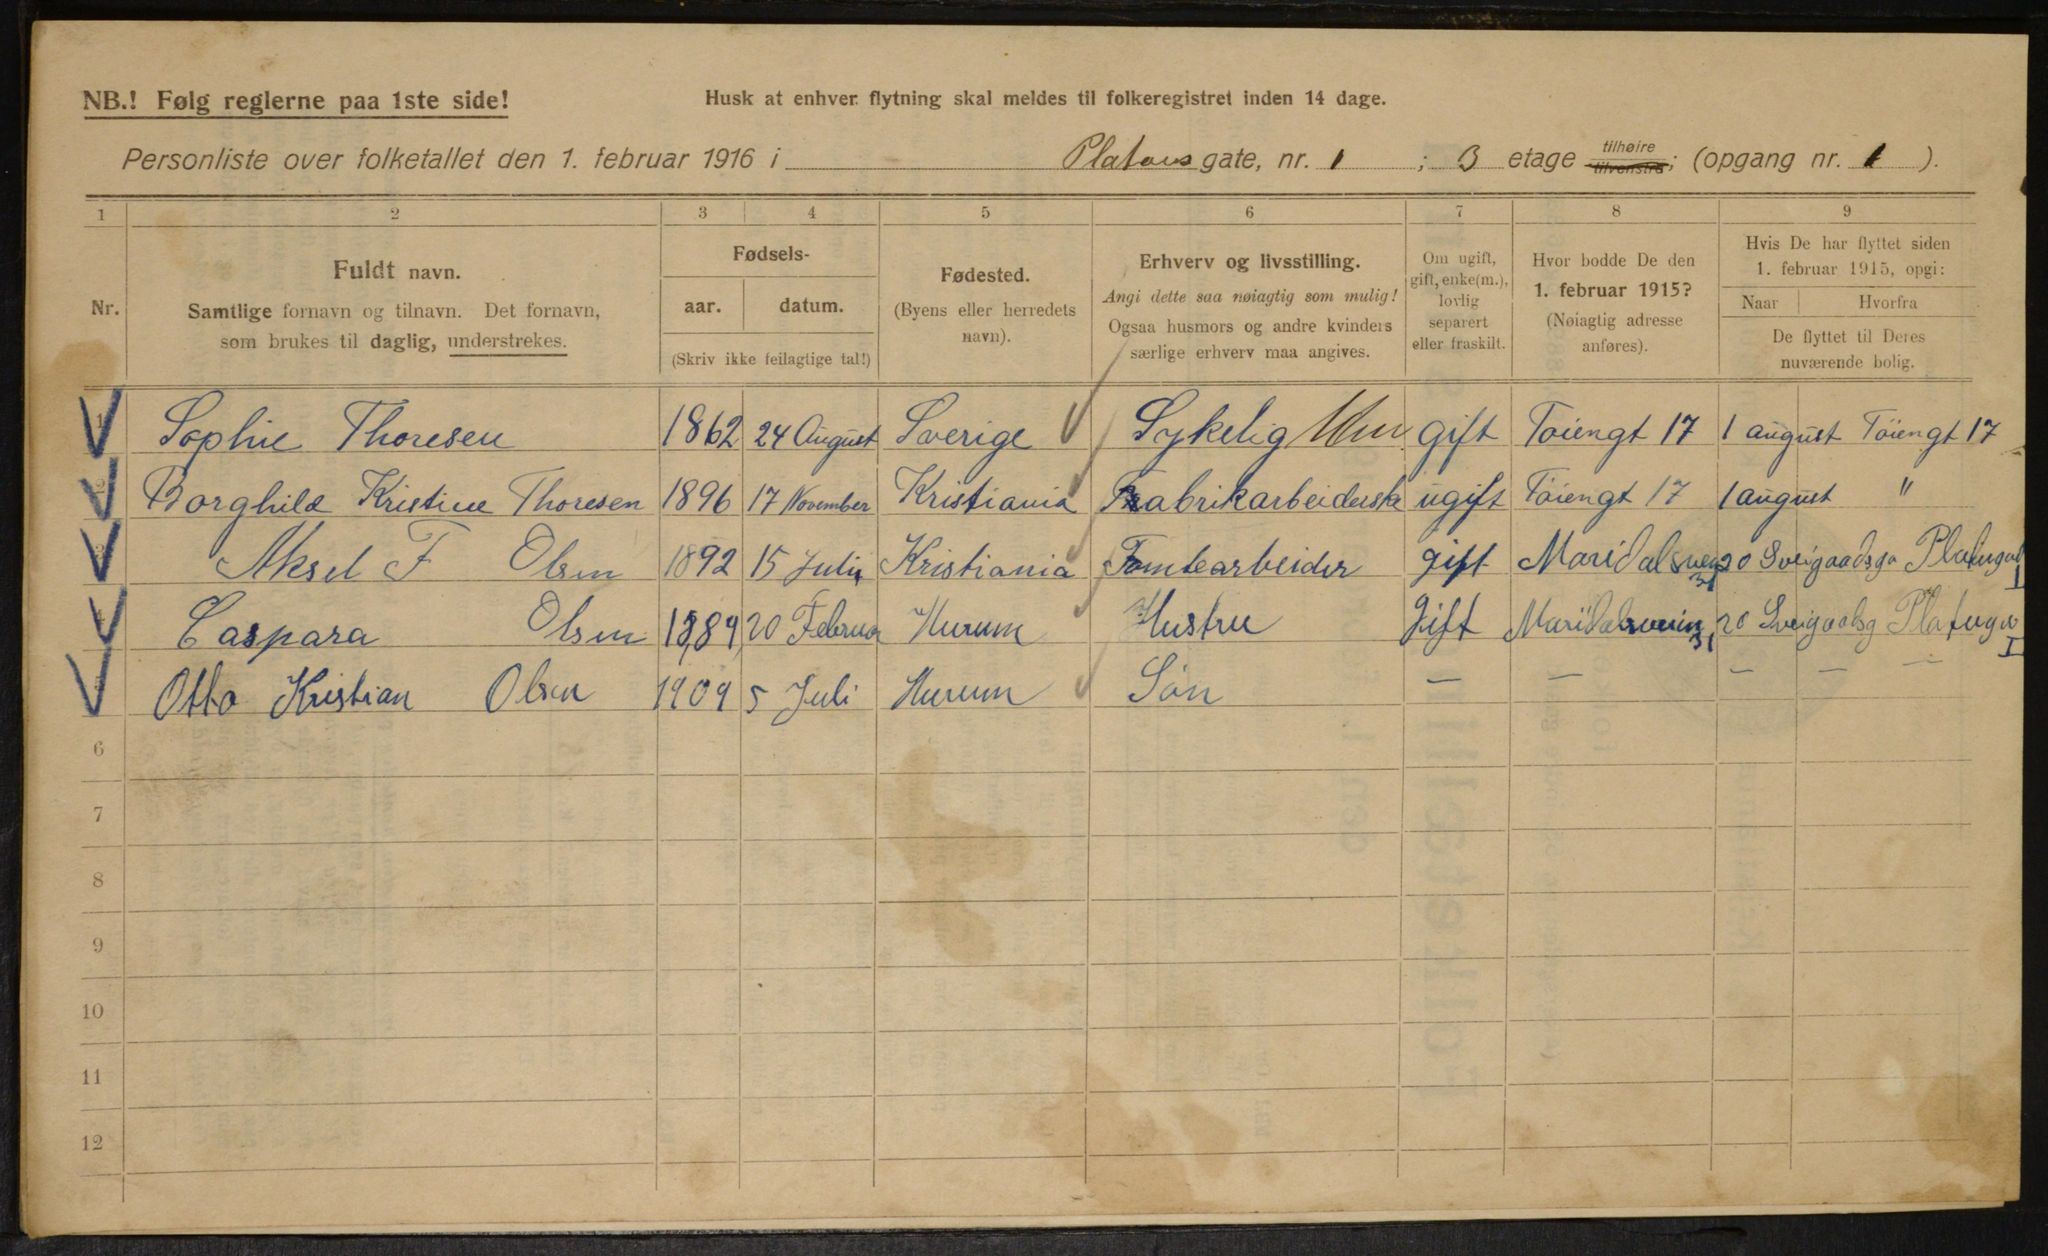 NB.! Følg reglerne paa 1ste side!
Husk at enhver flytning skal meldes til folkeregistret inden 14 dage.
Personliste over folketallet den 1. februar 1916 i Platous gate, nr. 1 ; 3 etage tilhøire tilvenstre; (opgang nr. 1 ).
1 2 3 4 5 6 7 8 9
Nr.
Fuldt navn.
Samtlige fornavn og tilnavn. Det fornavn,
som brukes til daglig, understrekes.
Fødsels-
aar. datum.
(Skriv ikke feilagtige tal!)
Fødested.
(Byens eller herredets
navn).
Erhverv og livsstilling.
Angi dette saa nøiagtig som mulig!
Ogsaa husmors og andre kvinders
særlige erhverv maa angives.
Om ugift,
gift, enke(m.),
lovlig
separert
eller fraskilt.
Hvor bodde De den
1. februar 1915?
(Nøiagtig adresse
anføres).
Hvis De har flyttet siden
1. februar 1915, opgi:
Naar Hvorfra
De flyttet til Deres
nuværende bolig.
1 Sophie Thoresen 1862 24 August Sverige Sykelig gift Toiengt 17 1 august Töiengt 17
2 Borghild Kristine Thoresen 1896 17 November Kristiania Fabrikarbeiderske ugift Töiengt 17 1 august "
3 Aksel F Olsen 1892 15 Juli Kristiania Tomtearbeider gift Maridalsvei 31 20
4 Caspara Olsen 1889 20 Februar Hurum Hustru Gift Maridalsveien 31 20
5 Otto Kristian Olsen 1909 5 Juli Hurum Sön — — — — —
6
7
8
9
10
11
12